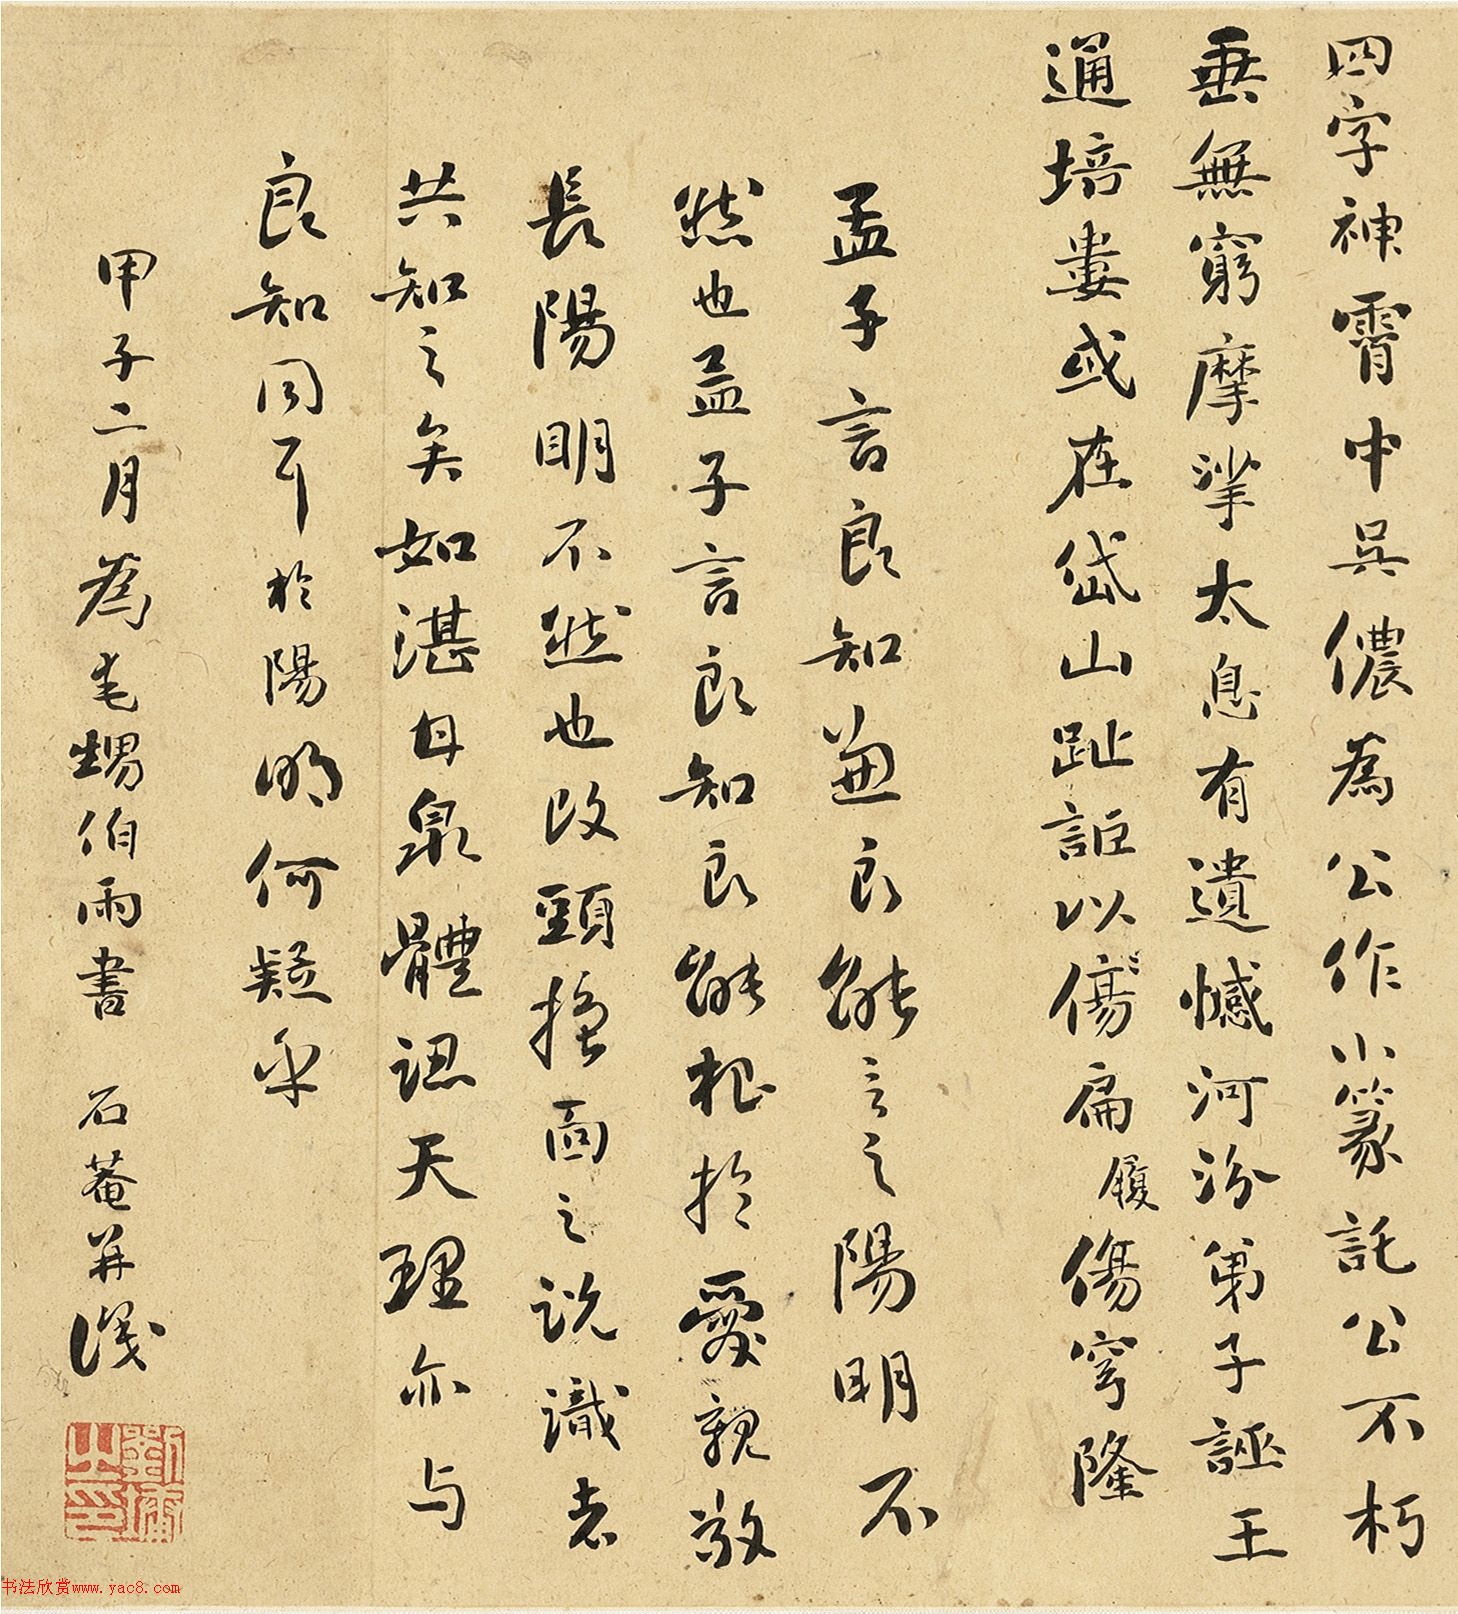 四字神霄中吳儂為公作小篆託公不朽
垂無窮摩挲太息有遺憾河汾弟子誣王
通培塿或在岱山趾詎以傷扁履傷穹隆
孟子言良知兼良能言之陽明不
然也孟子言良知良能根於愛親敬
長陽明不然也改頭換面之說識者
共知之矣如湛甘泉體認天理亦与
良知同耳於陽明何疑乎
甲子二月為毛甥伯雨書 石菴並識
劉墉之印
书法欣赏www.yac8.com